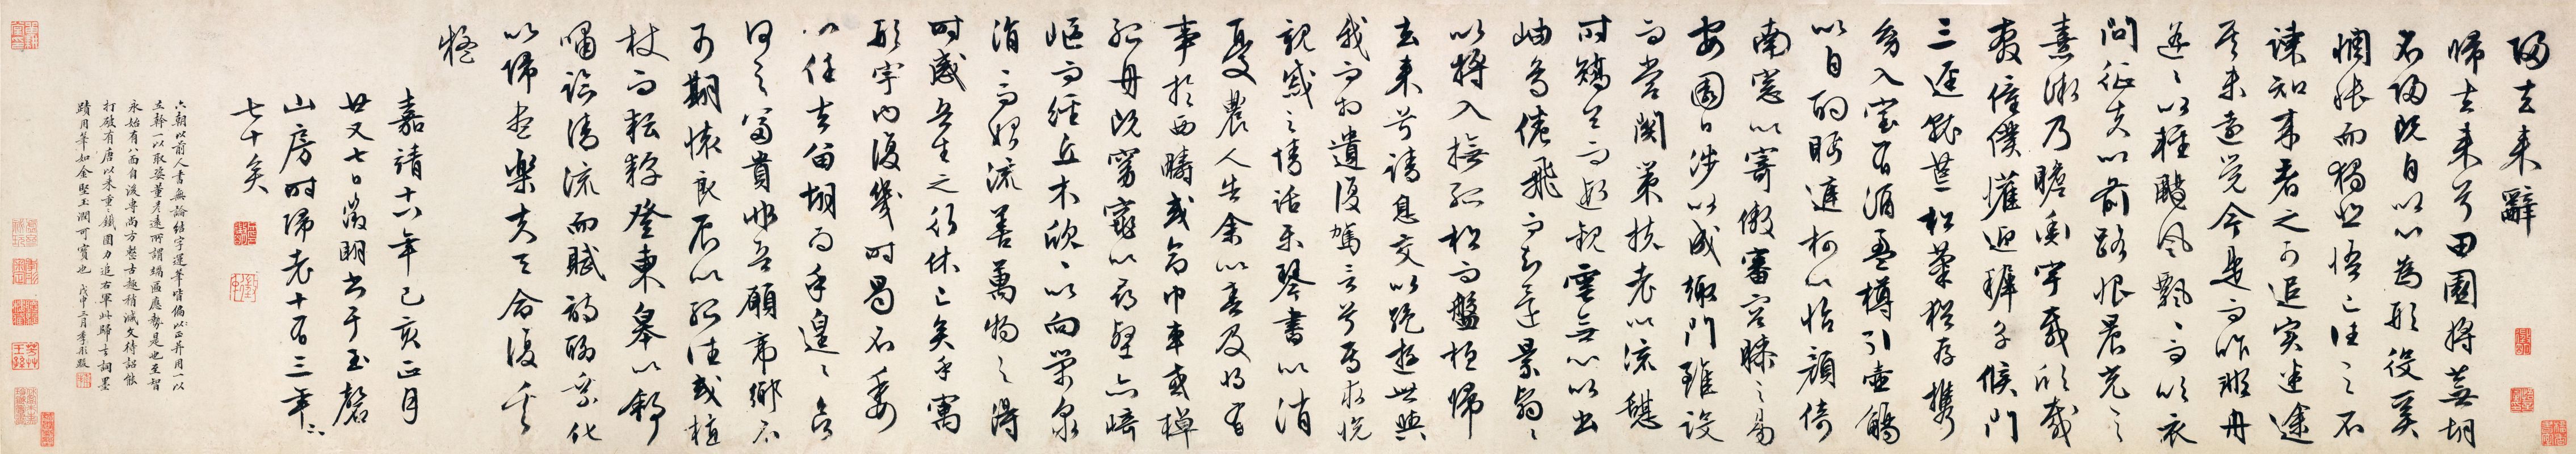 歸去來辭
歸去來兮田園將蕪胡
不歸既自以心為形役奚
惆悵而獨悲悟已往之不
諫知來者之可追實迷途
其未遠覺今是而昨非舟
遙〻以輕颺風飄〻而吹衣
問征夫以前路恨晨光之
熹微乃瞻衡宇載欣載
奔僮僕懽迎稚子候門
三逕就荒松菊猶存攜
幼入室有酒盈樽引壺觴
以自酌眄庭柯以怡顏倚
南窓以寄傲審容膝之易
安園日涉以成趣門雖設
而常關策扶老以流憩
時矯首而遐觀雲無心以出
岫鳥倦飛而知還景翳〻
以將入撫孤松而盤桓歸
去來兮請息交以絕遊世與
我而相遺復駕言兮焉求悅
親戚之情話樂琴書以消
憂農人告余以春及將有
事於西疇或命巾車或棹
孤舟既窈窕以尋壑亦崎
嶇而經丘木欣〻以向榮泉
涓〻而始流善萬物之得
時感吾生之行休已矣乎寓
形宇內復幾時曷不委
心任去留胡為乎遑〻欲
何之富貴非吾願帝鄉不
可期懷良辰以孤往或植
杖而耘耔登東皋以舒
嘯臨清流而賦詩聊乘化
以歸盡樂夫天命復奚
疑
嘉靖十八年己亥正月
廿又七日徵明書于玉磬
山房時歸老十有三年亦
七十矣
六朝以前人書無論結字運筆皆偏以正并用一以
立幹一以取姿董彥遠所謂端匾應勢是也至智
永始有八面自後專尚方整古趣稍減文待詔能
打破有唐以來重〻鐵圍力追右軍此歸去詞墨
蹟用筆如金堅玉潤可寶也 戊申三月季彤題